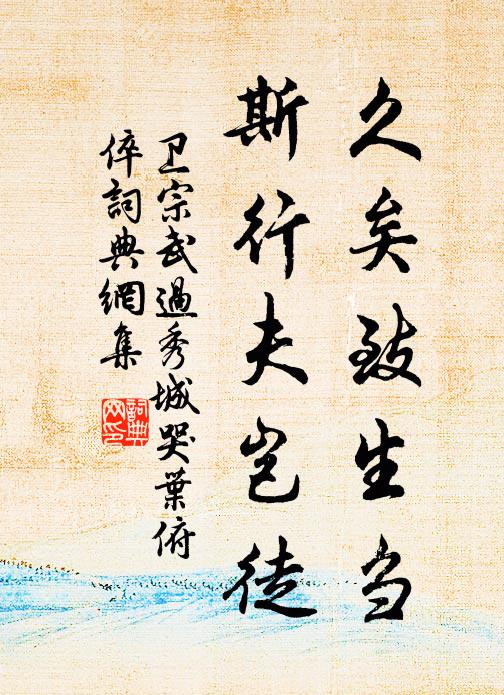 久矣致生刍
斯行夫岂徒
卫宗武過秀城哭葉俯
倅詞典網集
詞典网印